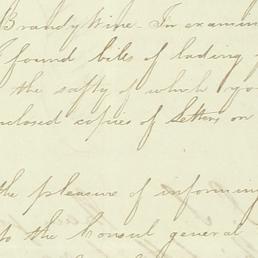 Brandy Wine. In examin
I found bills of lading
the safty of which yo
nclosed copies of Letters on
the pleasure of informing
to the Consul general